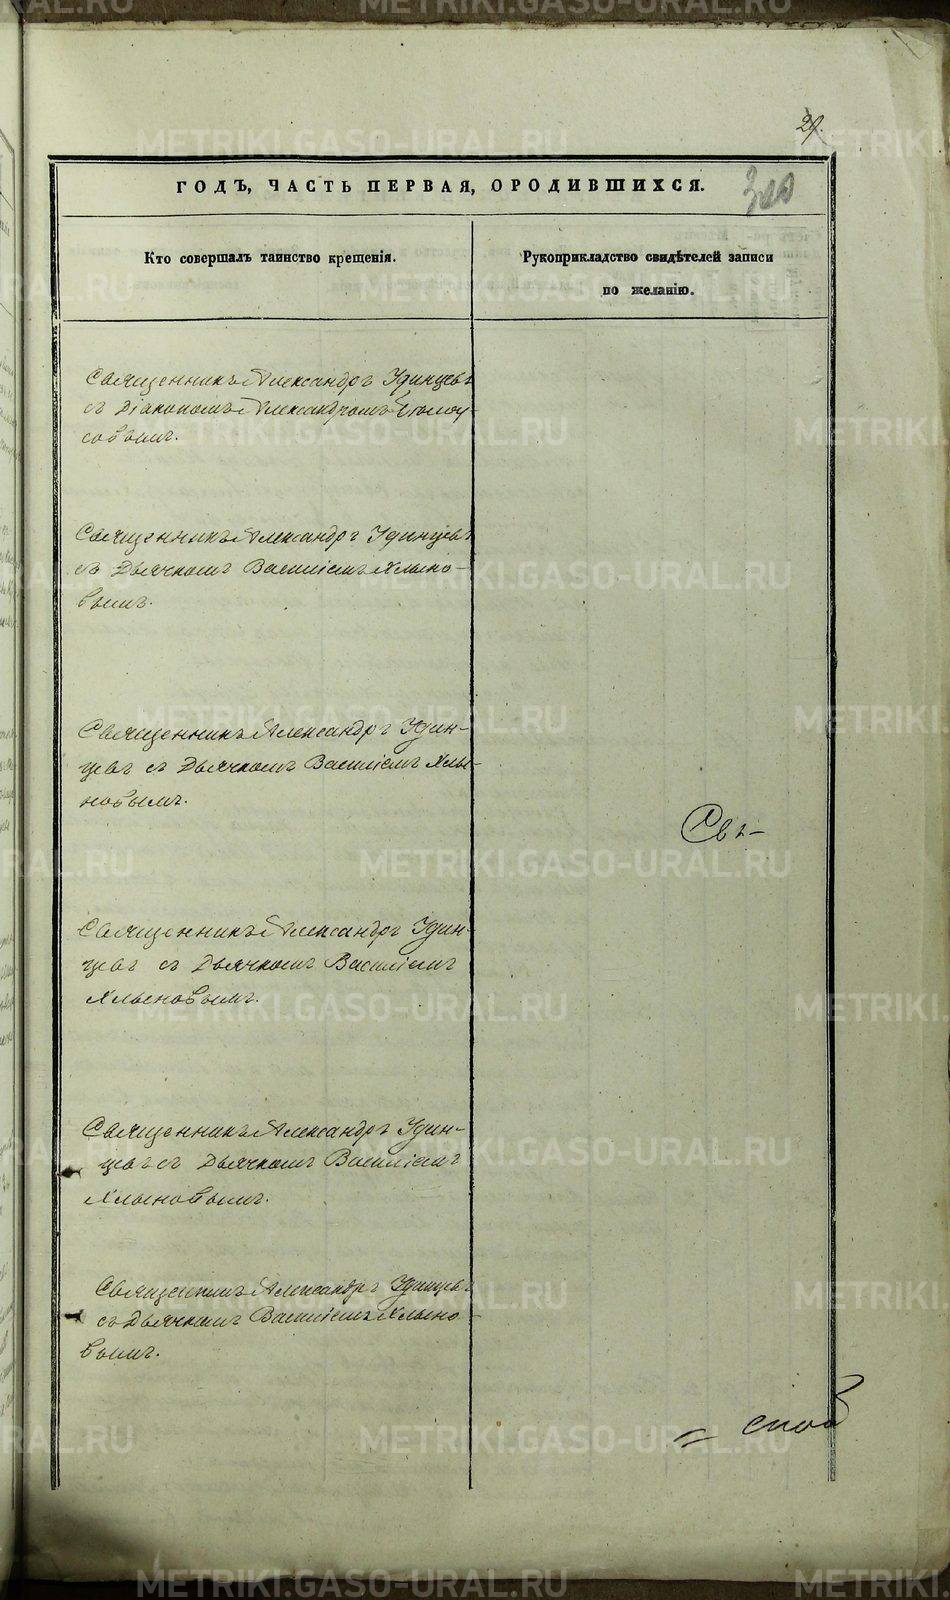 29.
ГОДЪ, ЧАСТЬ ПЕРВАЯ, О РОДИВШИХСЯ.
Кто совершалъ таинство крещенія.
Рукоприкладство свидѣтелей записи
по желанію.
Священникъ Александръ Удинцевъ
съ Діакономъ Александромъ
совымъ.
Священникъ Александръ Удинцевъ
съ Дьячкомъ Василіемъ Хлыно-
вымъ.
Священникъ Александръ Удин-
цевъ съ Дьячкомъ Василіемъ Хлы-
новымъ.
Свя-
Священникъ Александръ Удин-
цевъ съ Дьячкомъ Василіемъ
Хлыновымъ.
Священникъ Александръ Удин-
цевъ съ Дьячкомъ Василіемъ
Хлыновымъ.
Священникъ Александръ Удинцевъ
съ Дьячкомъ Василіемъ Хлыно-
вымъ.
METRIKI.GASO-URAL.RU